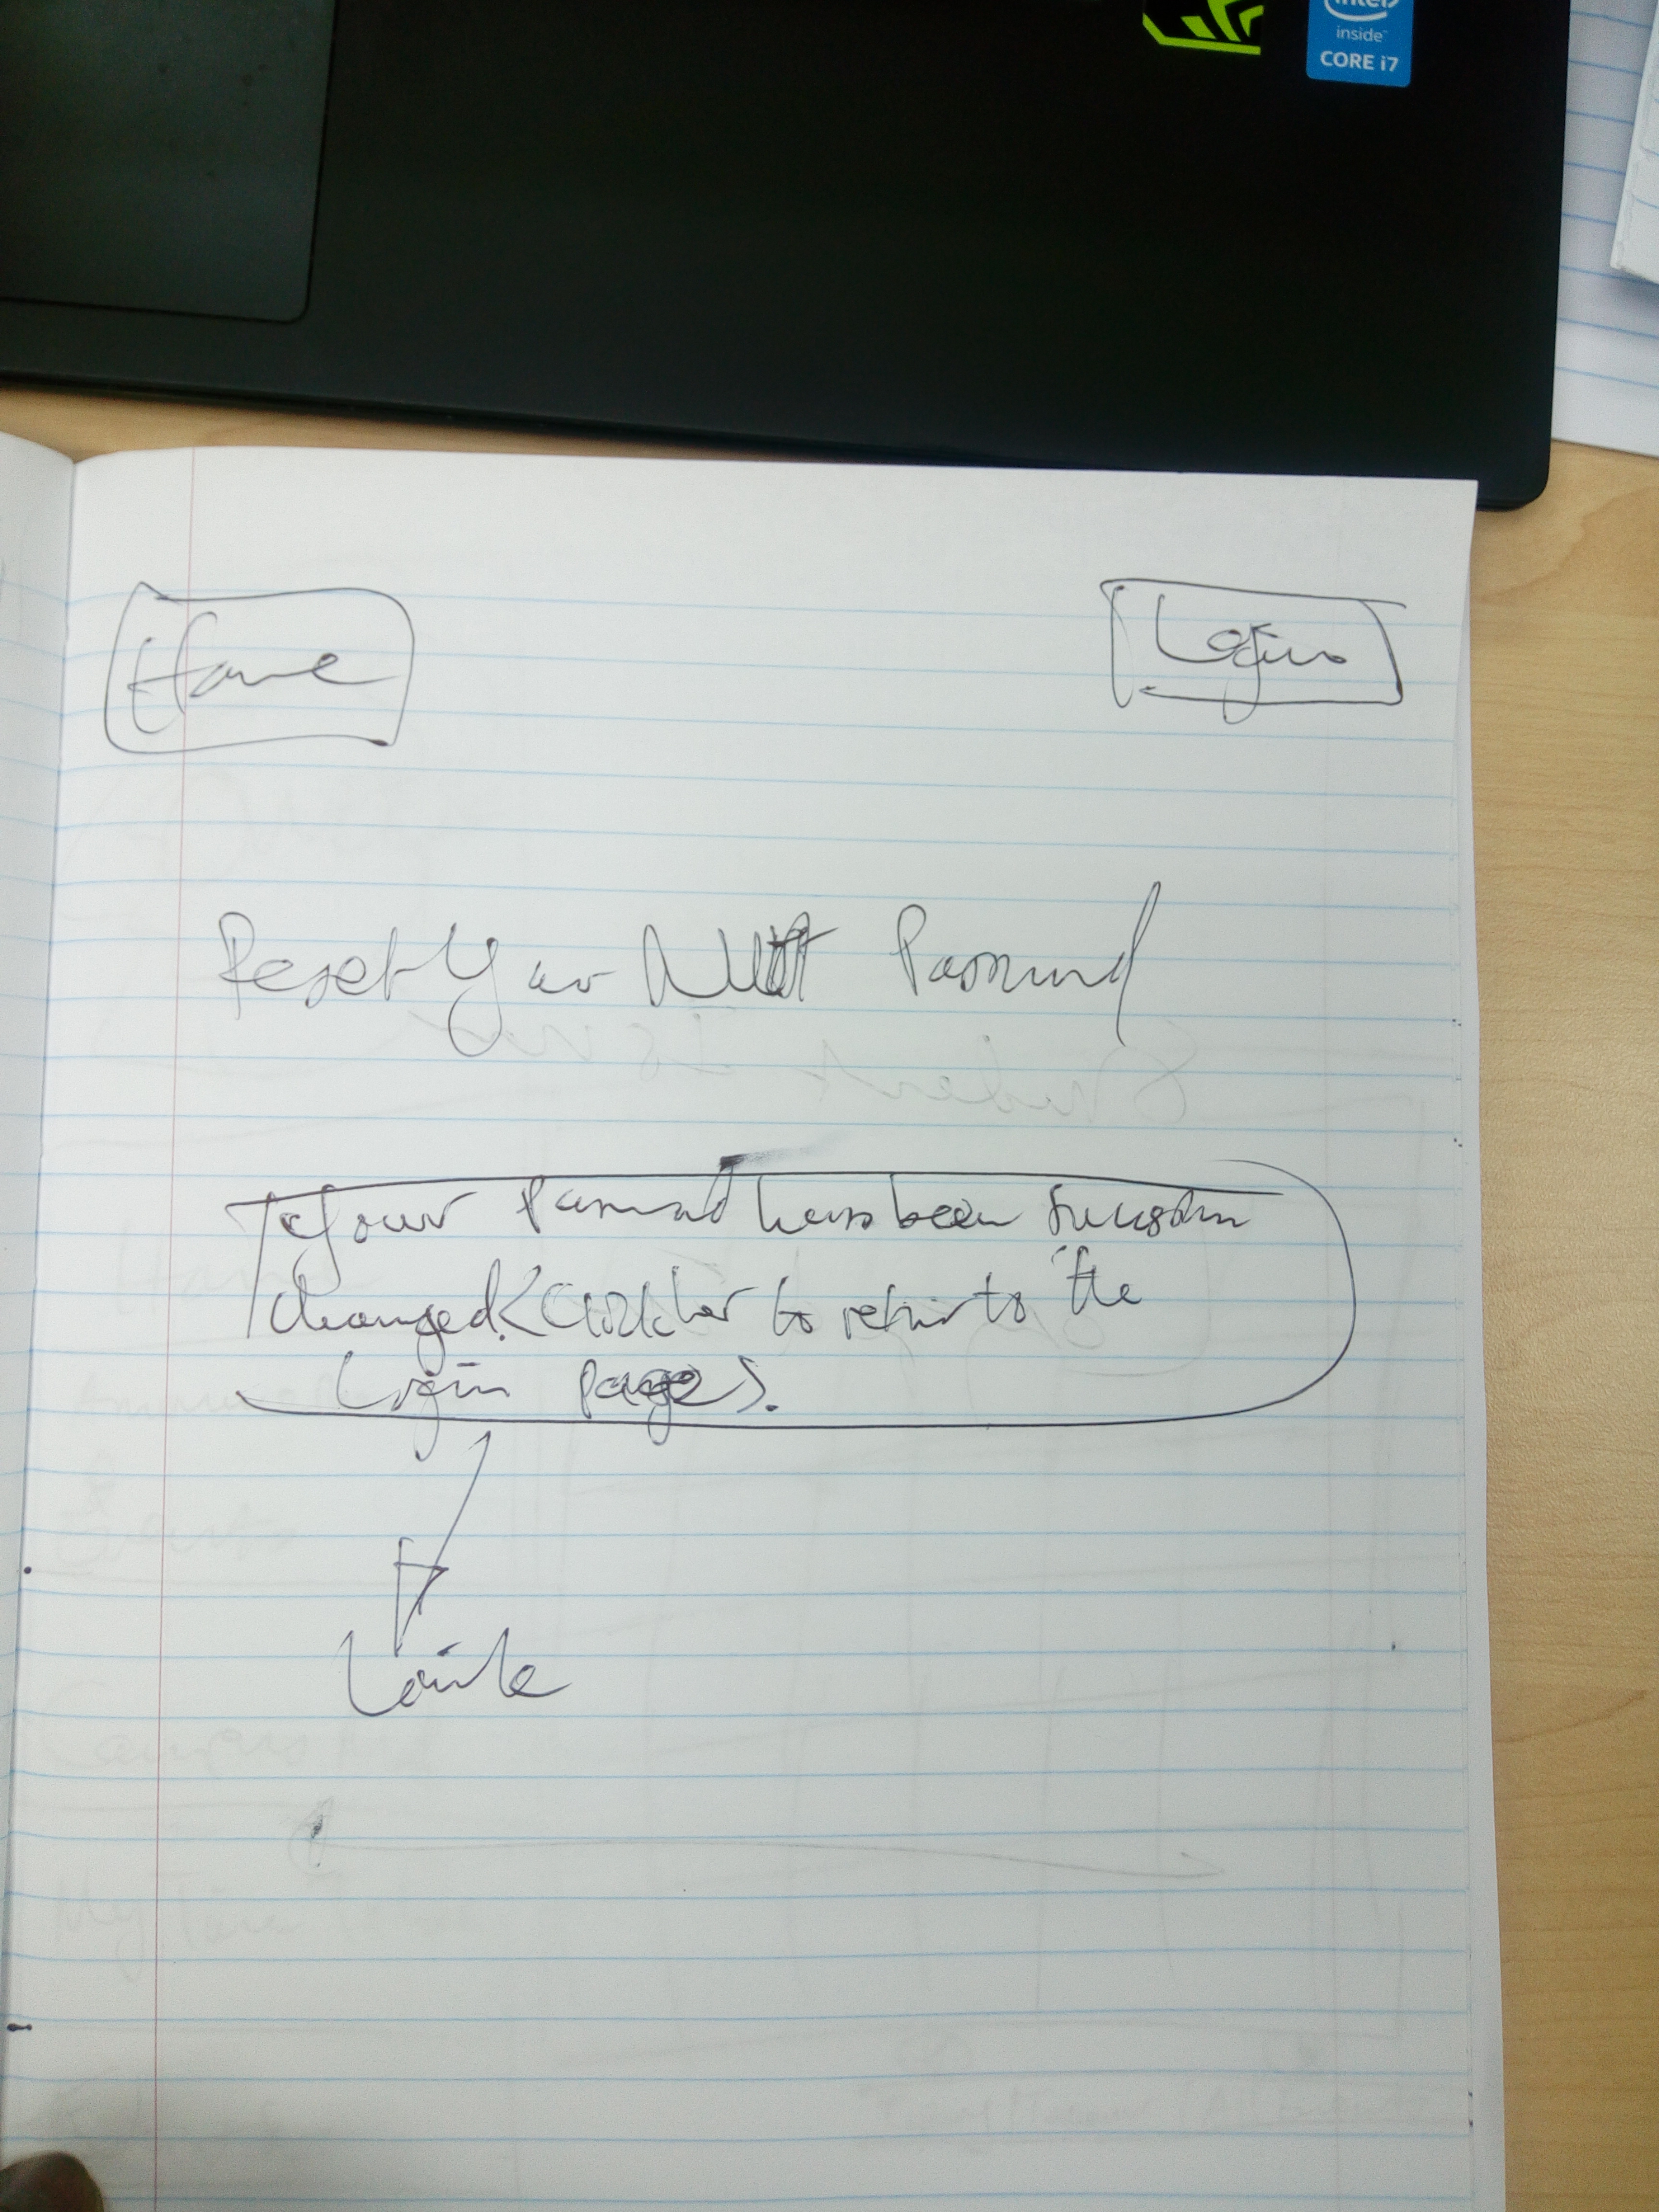 intel
inside
CORE i7
Home
Login
Reset Your Password
Your Password has been
changed. <Click her to return to the
Login page>.